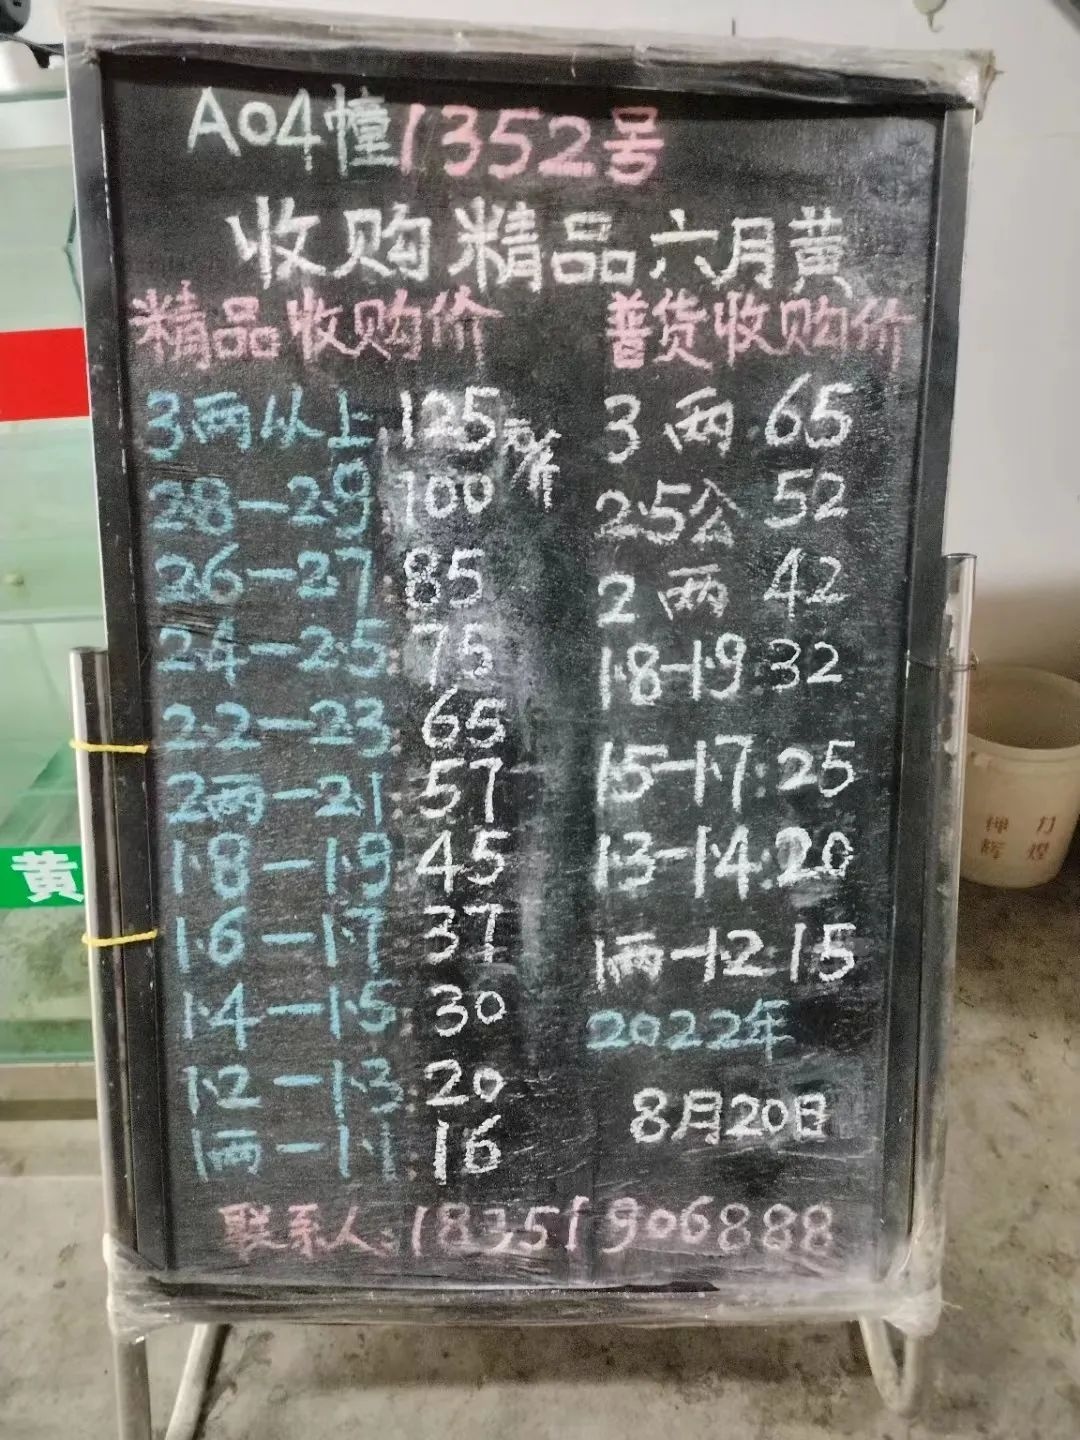 A04幢1352号
收购精品六月黄
精品收购价
3两以上 125元/斤
2.8—2.9 100
2.6—2.7: 85
2.4—2.5: 75
2.2—2.3: 65
2两—2.1: 57
1.8—1.9: 45
1.6—1.7: 37
1.4—1.5: 30
1.2—1.3: 20
1两—1.1 16
普货收购价
3两 65
2.5公 52
2两 42
1.8—1.9: 32
1.5—1.7: 25
1.3—1.4: 20
1两—1.2 15
2022年
8月20日
联系人: 18351906888
黄